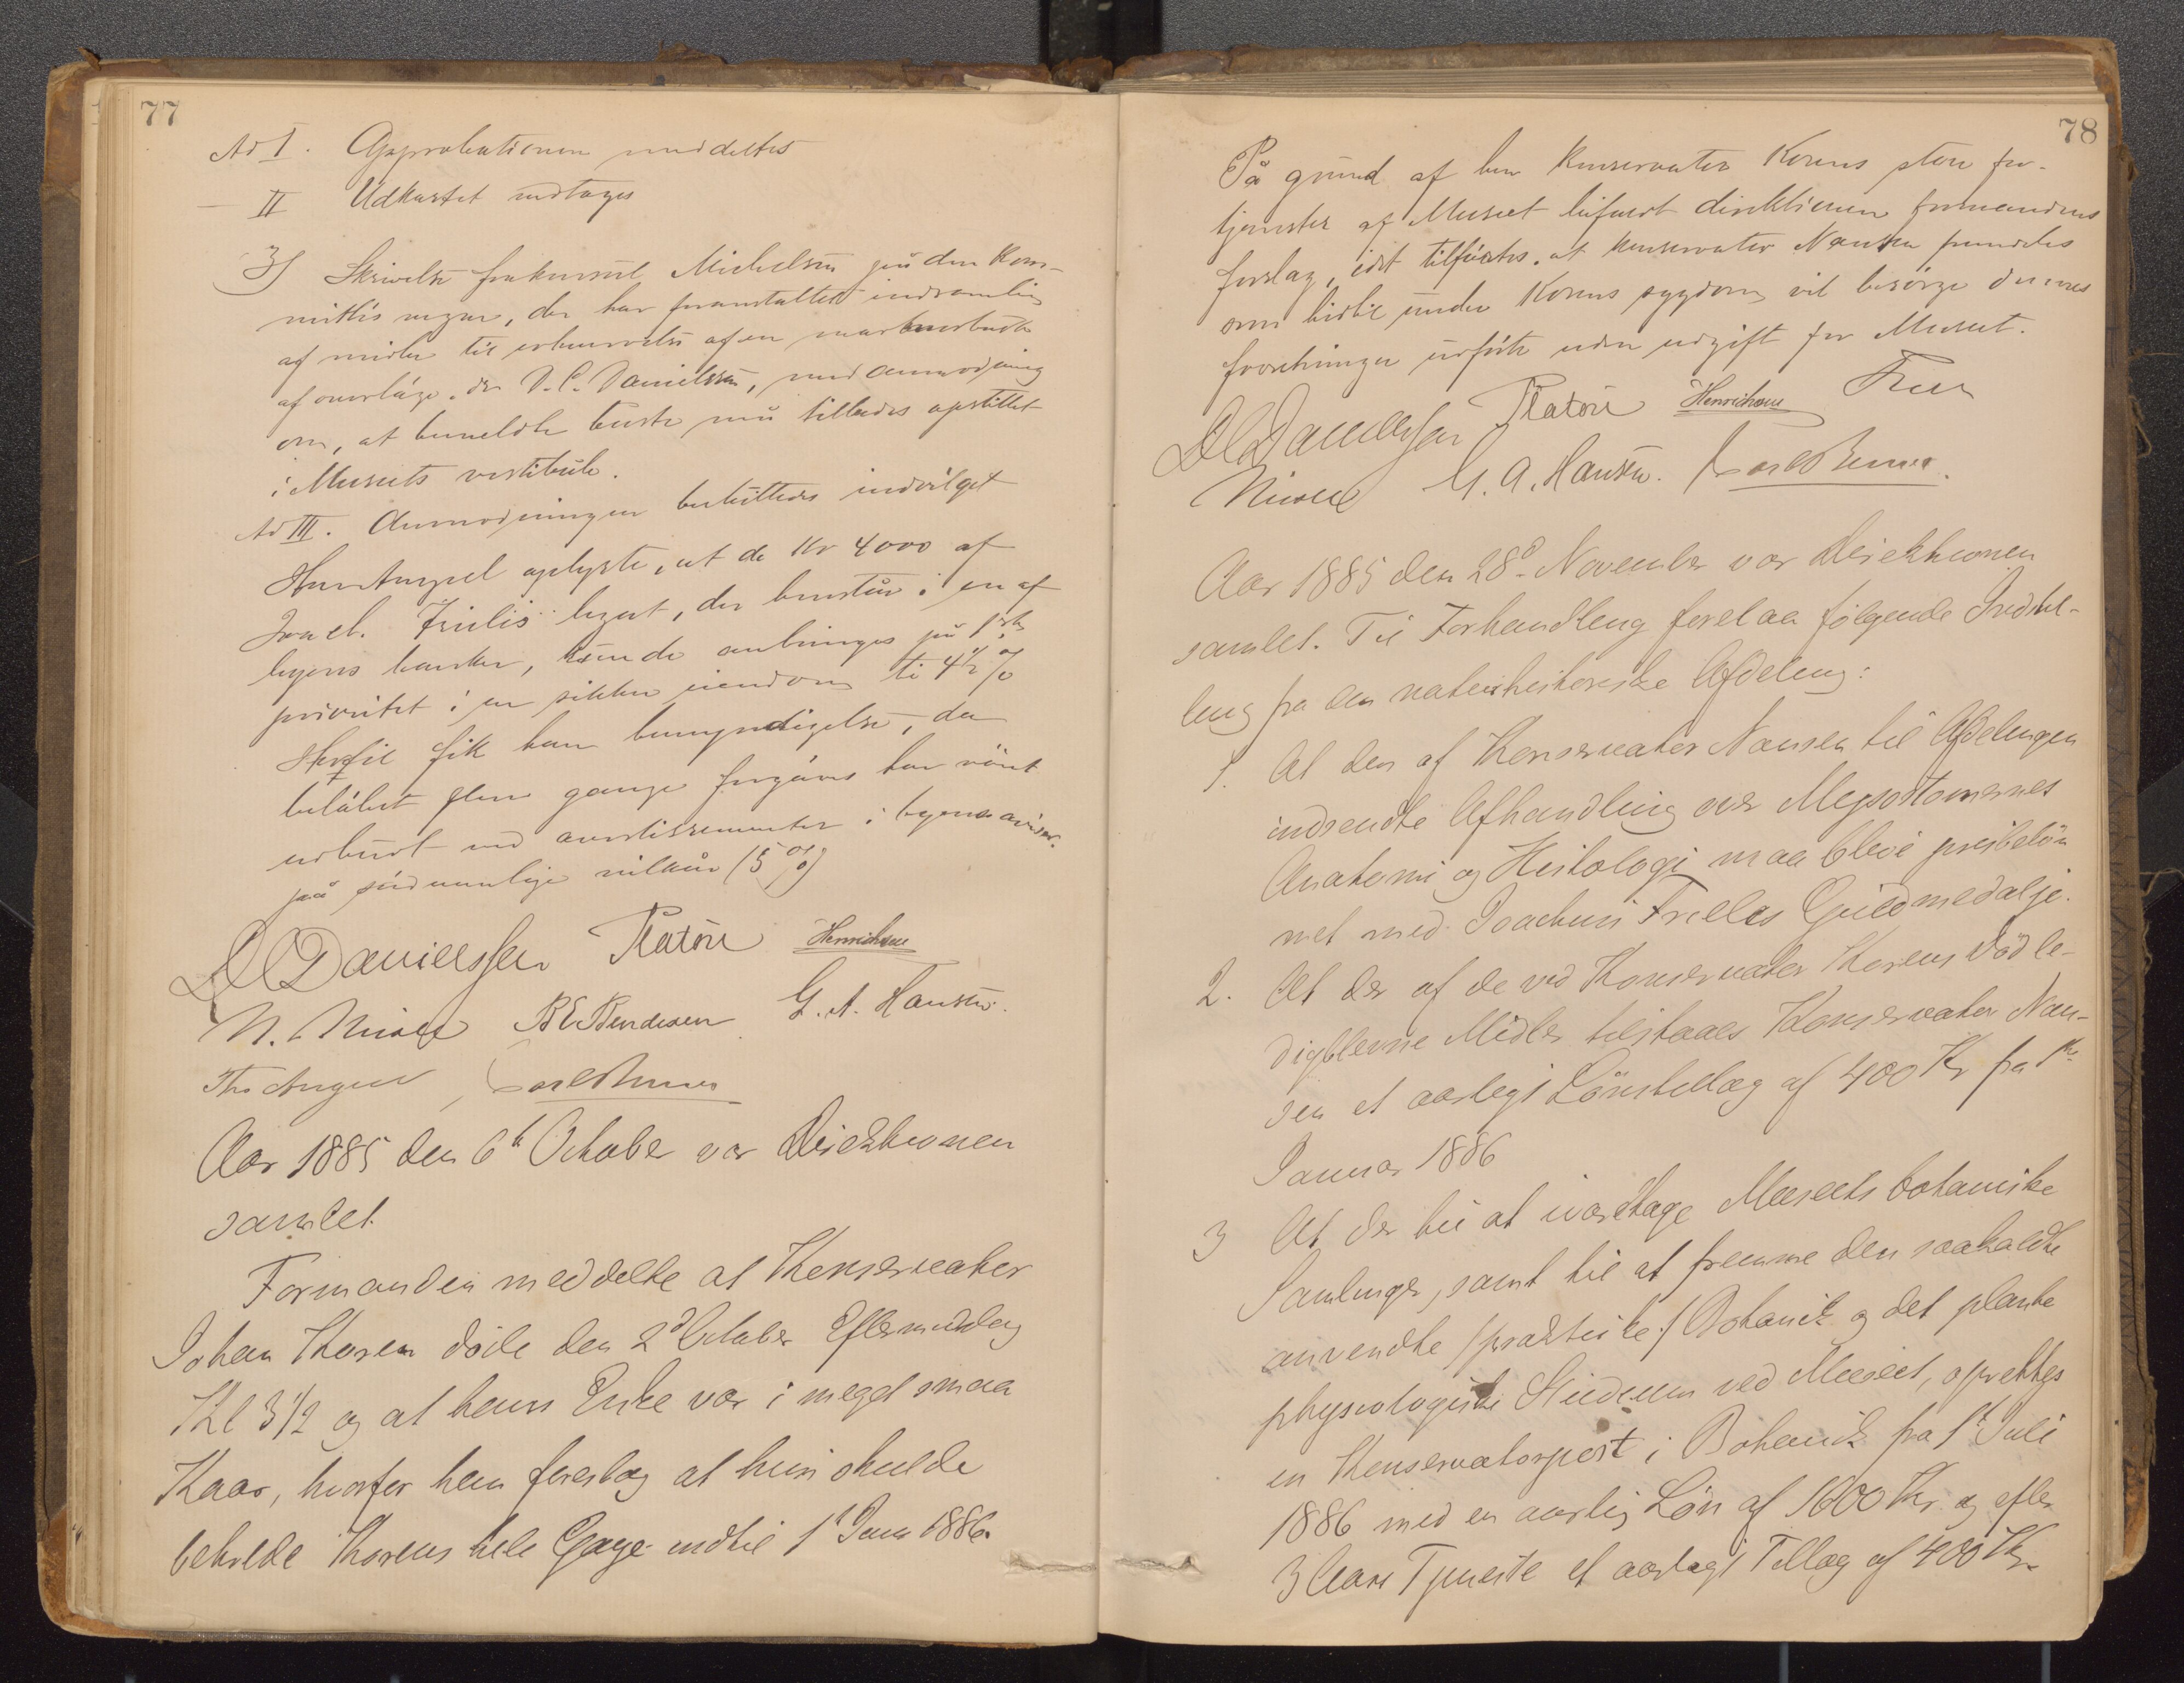 77
Ad I. Approbationen meddeltes
— II Udkastet vedtages
3) Skrivelse fra konsul Michelsen på den kom-
mittés vegne, der har foranstaltet indsamling
af midler til erhvervelse af en marmorbuste
af overlæge dr D. C. Danielssen, med anmodning
om, at bemeldte buste må tillades opstillet
i Museets vestibule.
Ad III. Anmodningen besluttedes indvilget
oplyste, at de Kr 4000 af
Joach. Frieles legat, der henstår i en af
byens banker, kunde anbringes på 1ste
prioritet i en sikker eiendom til 4½ %
Hertil fik han bemyndigelse, da
beløbet flere gange forgjæves har vært
udbudt ved avertissementer i byens aviser.
på sædvanlige vilkår (5 %)
D C Danielssen Platou Henrichsen
N. Nicolay B E Bendixen G. A. Hansen.
Aar 1885 den 6te October var Direktionen
samlet.
Formanden meddelte at Konservator
Johan Koren døde den 2d October Eftermiddag
Kl 3 1/2 og at hans Enke var i meget smaa
Kaar, hvorfor han foreslog at hun skulde
beholde Korens hele Gage indtil 1st Janr 1886.
78
På grund af herr Konservator Korens store for-
tjenster af Museet bifaldt direktionen formandens
forslag, idet tilføiedes, at konservator Nansen fremdeles
som hidtil under Korens sygdom vil besørge dennes
forretninger udførte uden udgift for Museet.
D C Danielssen Platou Henrichsen Friele
Nicolay G. A. Hansen.
Aar 1885 den 28d November var Direktionen
samlet. Til Forhandling forelaa følgende Indstil-
ling fra den naturhistoriske Afdeling:
1. At den af Konservator Nansen til Afdelingen
indsendte Afhandling over Myzostomernes
Anatomi og Histologi maa blive prisbeløn
net med Joachim Frieles Guldmedalje.
2. At der af de ved Konservator Korens Død le-
digblevne Midler tilstaaes Konservator Nan-
sen et aarligt Lønstillæg af 400 Kr fra 1ste
Januar 1886
3 At der til at ivaretage Museets botaniske
Samlinger, samt til at fremme den saakaldte
anvendte /:praktiske:/ Botanik og det plante
physiologiske Studium ved Museet, oprettes
en Konservatorpost i Botanik fra 1st Juli
1886 med en aarlig Løn af 1600 Kr. og efter
3 Aars Tjeneste et aarligt Tillæg af 400 Kr.